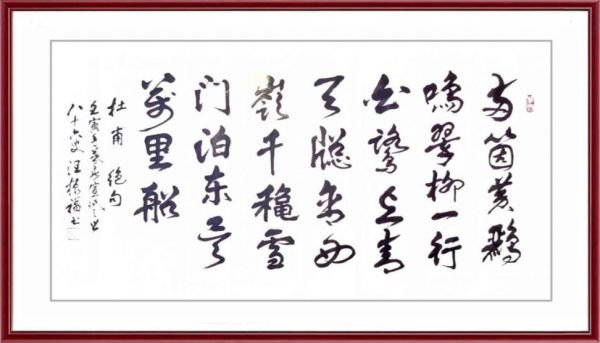 两箇黄鹂
鳴翠柳一行
白鹭上青
天牕含西
嶺千穐雪
门泊东吴
萬里船
杜甫绝句
壬寅
八十六叟汪振福书